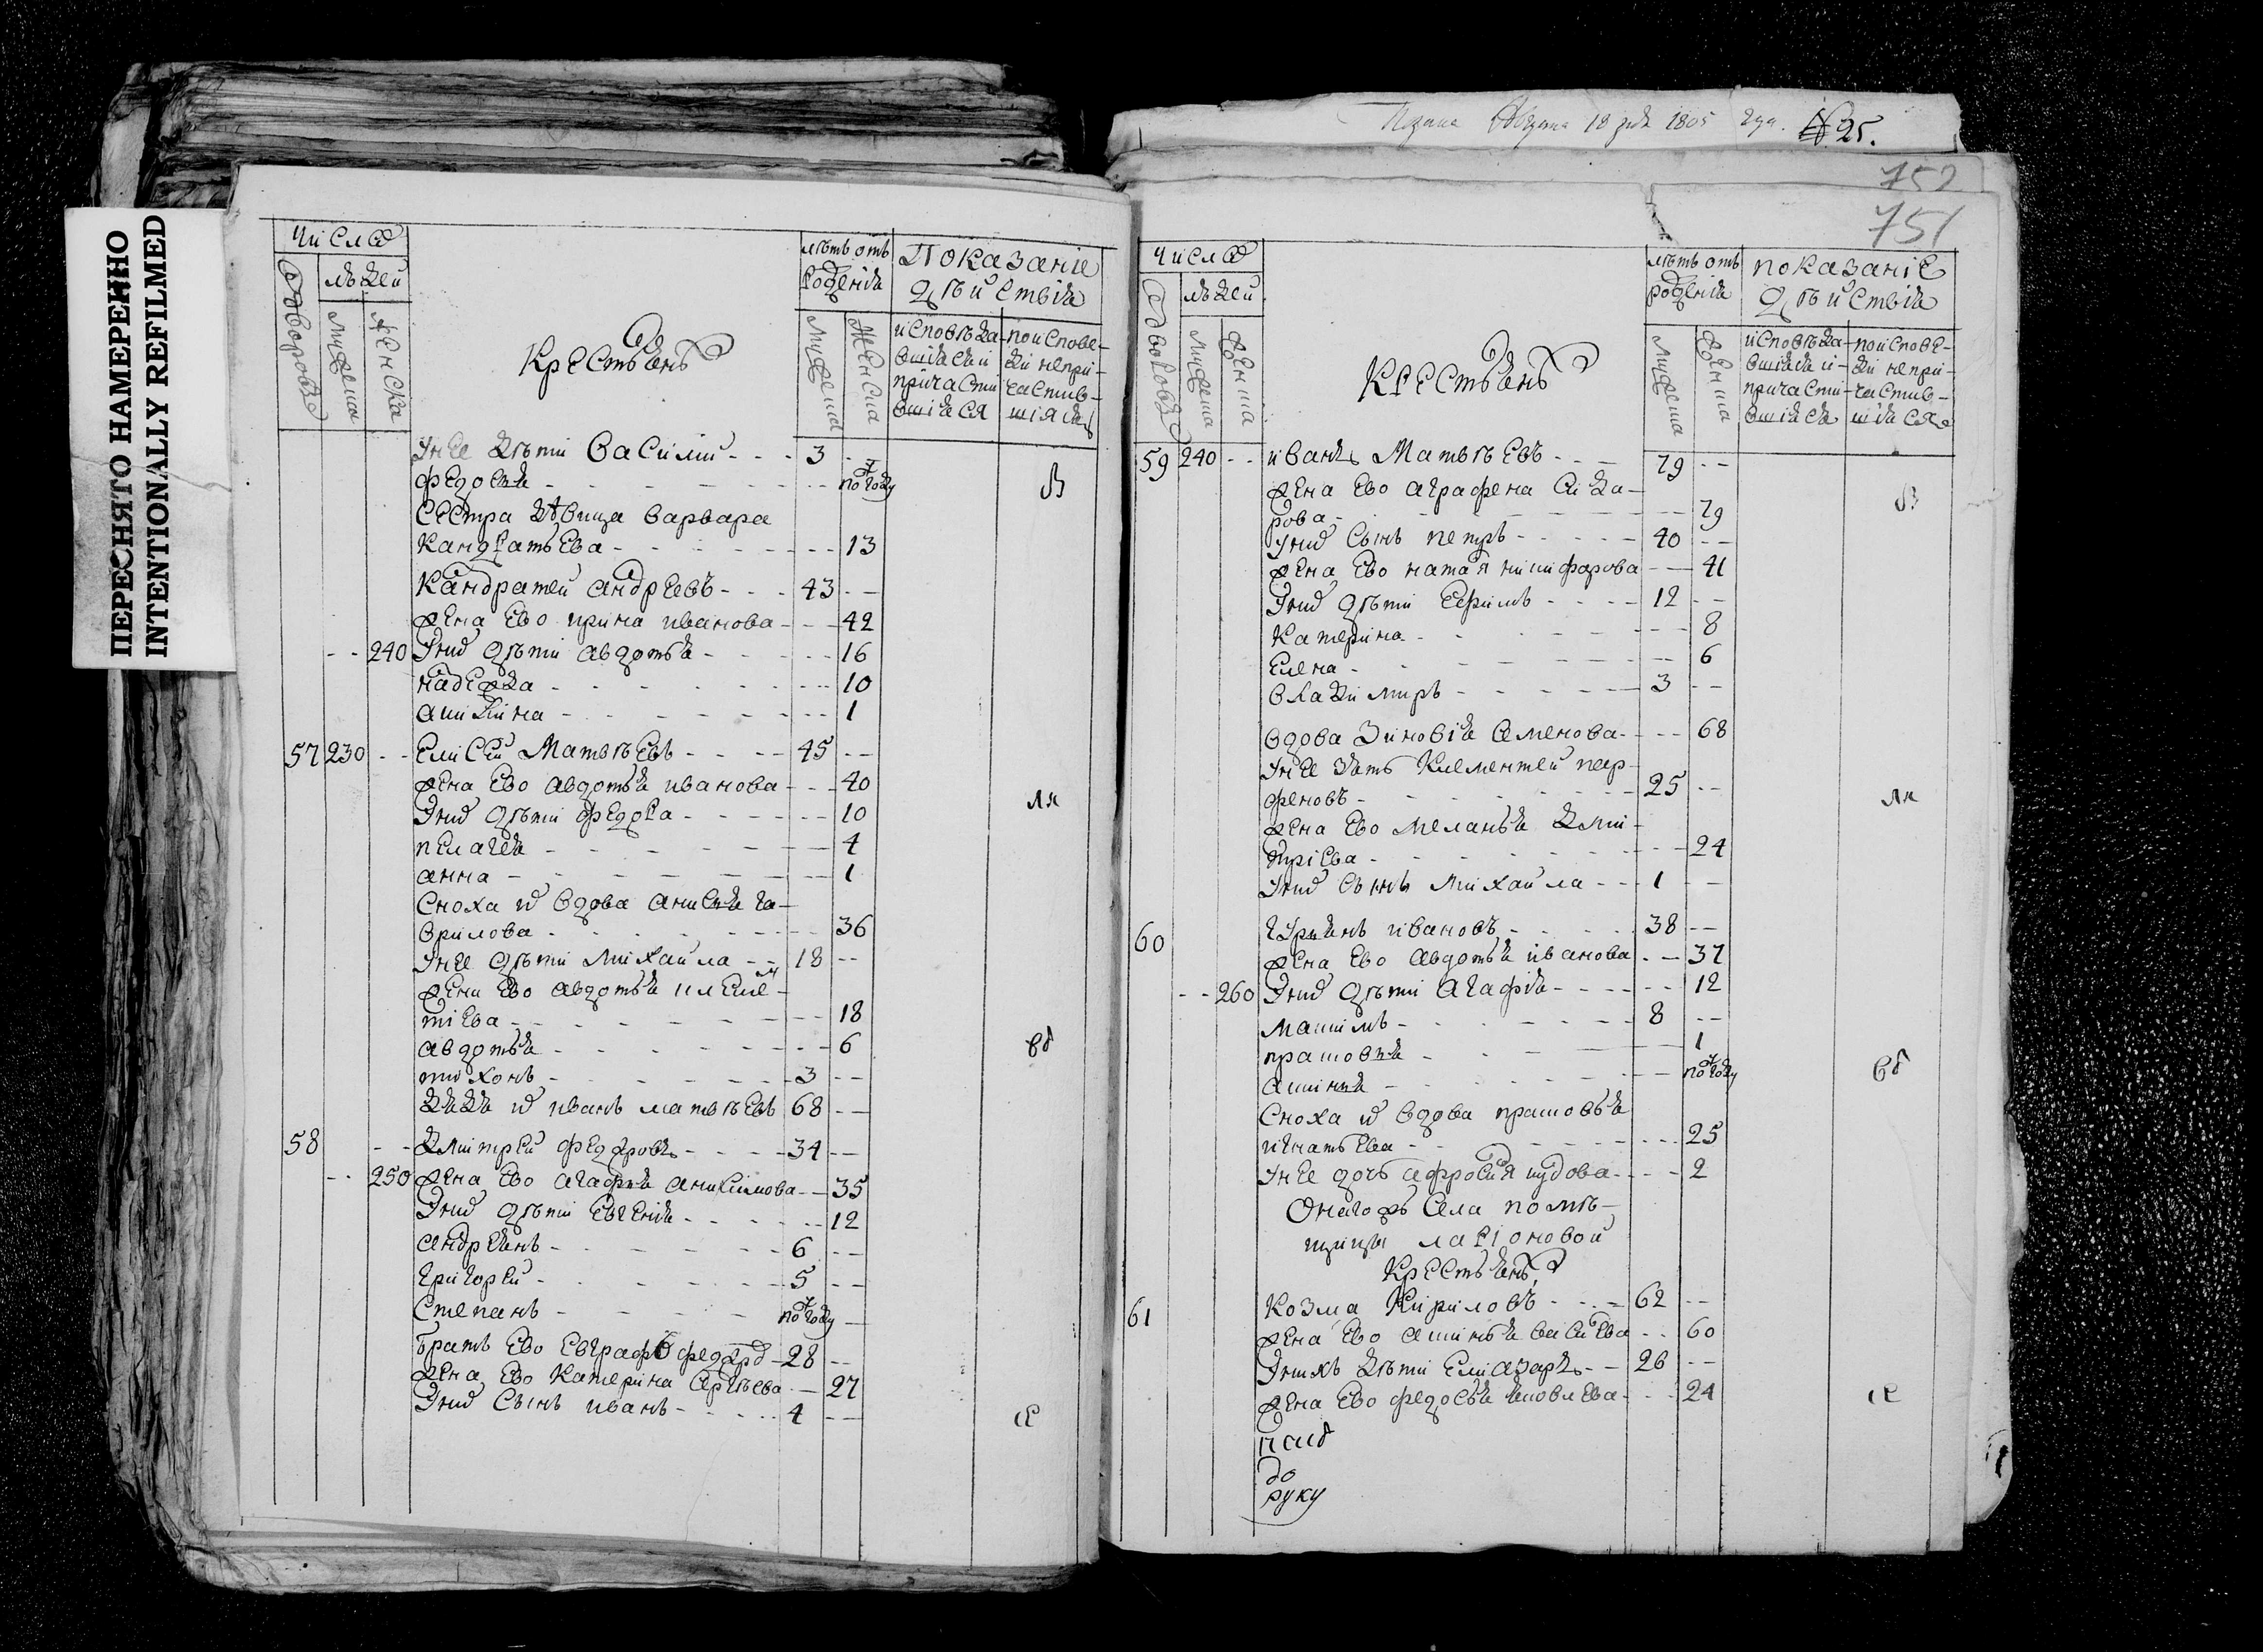 ПЕРЕСНЯТО НАМЕРЕННО
INTENTIONALLY REFILMED
1805 года. №25.
752
751
Числа
людей
Дворовъ
Мужеска
Женска
Крестьянъ
лѣтъ отъ рожденія
Мужеска
Женска
Показаніе
дѣйствія
исповѣда-
вшіяся и
причасти
вшіяся
по испове-
ди непри-
частив-
шіяся
У нее дѣти василій - - - 3 - -
федосья - - - - полгоду
сестра дѣвица варвара
кандратьева - - - - 13
Кандратей андреевъ - - - 43 - -
жена ево ирина иванова - - - 42
- - 240 У нихъ дѣти авдотья - - - - 16
надежда - - - - 10
акилина - - - - 1
57 230 - - Елисей Матвѣевъ - - - 45 - -
жена ево авдотья иванова - - - 40
У нихъ дѣти федора - - - - 10
пелагея - - - - 4
анна - - - - 1
Сноха и вдова анисья га-
врилова - - - - 36
У нее дѣти михайла - - 18 - -
жена ево авдотья
тіева - - - - 18
авдотья - - - - 6
тихонъ - - - - 3 - -
дядя и иванъ матвѣевъ 68 - -
58 - - дмитрей федоровъ - - - - 34 - -
- - 250 жена ево агафья анисимова - - 35
У нихъ дѣти евгенія - - - - 12
андреянъ - - - - 6 - -
григорей - - - - 5 - -
степанъ - - - - полгоду -
братъ ево евграфъ федоро - 28 - -
жена ево катерина сергѣева - - 27
У нихъ сынъ иванъ - - - - 4 - -
Числа
людей
Дворовъ
Мужеска
Женска
Крестьянъ
лѣтъ отъ рожденія
Мужеска
Женска
показаніе
дѣйствія
исповѣда-
вшіяся и-
причасти-
вшіяся
по испове-
ди непри-
частив-
шіяся
59 240 - - иванъ Матвѣевъ - - - 79 - -
жена ево аграфена сида-
рова - - - - 79
У нихъ сынъ петръ - - - - 40 - -
жена ево наталя никифарова - - 41
У нихъ дѣти Ефимъ - - - - 12 - -
катерина - - - - 8
елена - - - - 6
владимиръ - - - - 3 - -
вдова Зиновія семенова - - - 68
У нее зять Клементей пар-
феновъ - - - - 25 - -
жена ево меланья дми-
тріева - - - - 24
У нихъ сынъ михайла - - - 1 - -
60 гурьянъ ивановъ - - - 38 - -
жена ево авдотья иванова - - 37
- - 260 У нихъ дѣти Агафія - - - - 12
максимъ - - - - 8 - -
прасковья - - - - 1
аксинья - - - - полгоду
Сноха и вдова прасковья
игнатьева - - - - 25
У нее дочь афросиня - - - 2
Онагожъ села помѣ-
щицы ларіоновой
Крестьянъ
61 Козма Кириловъ - - - 62 - -
жена ево аксинья васильева - - 60
У нихъ дѣти елиазаръ - - 26 - -
жена ево федосья яковлева - - - 24
руку